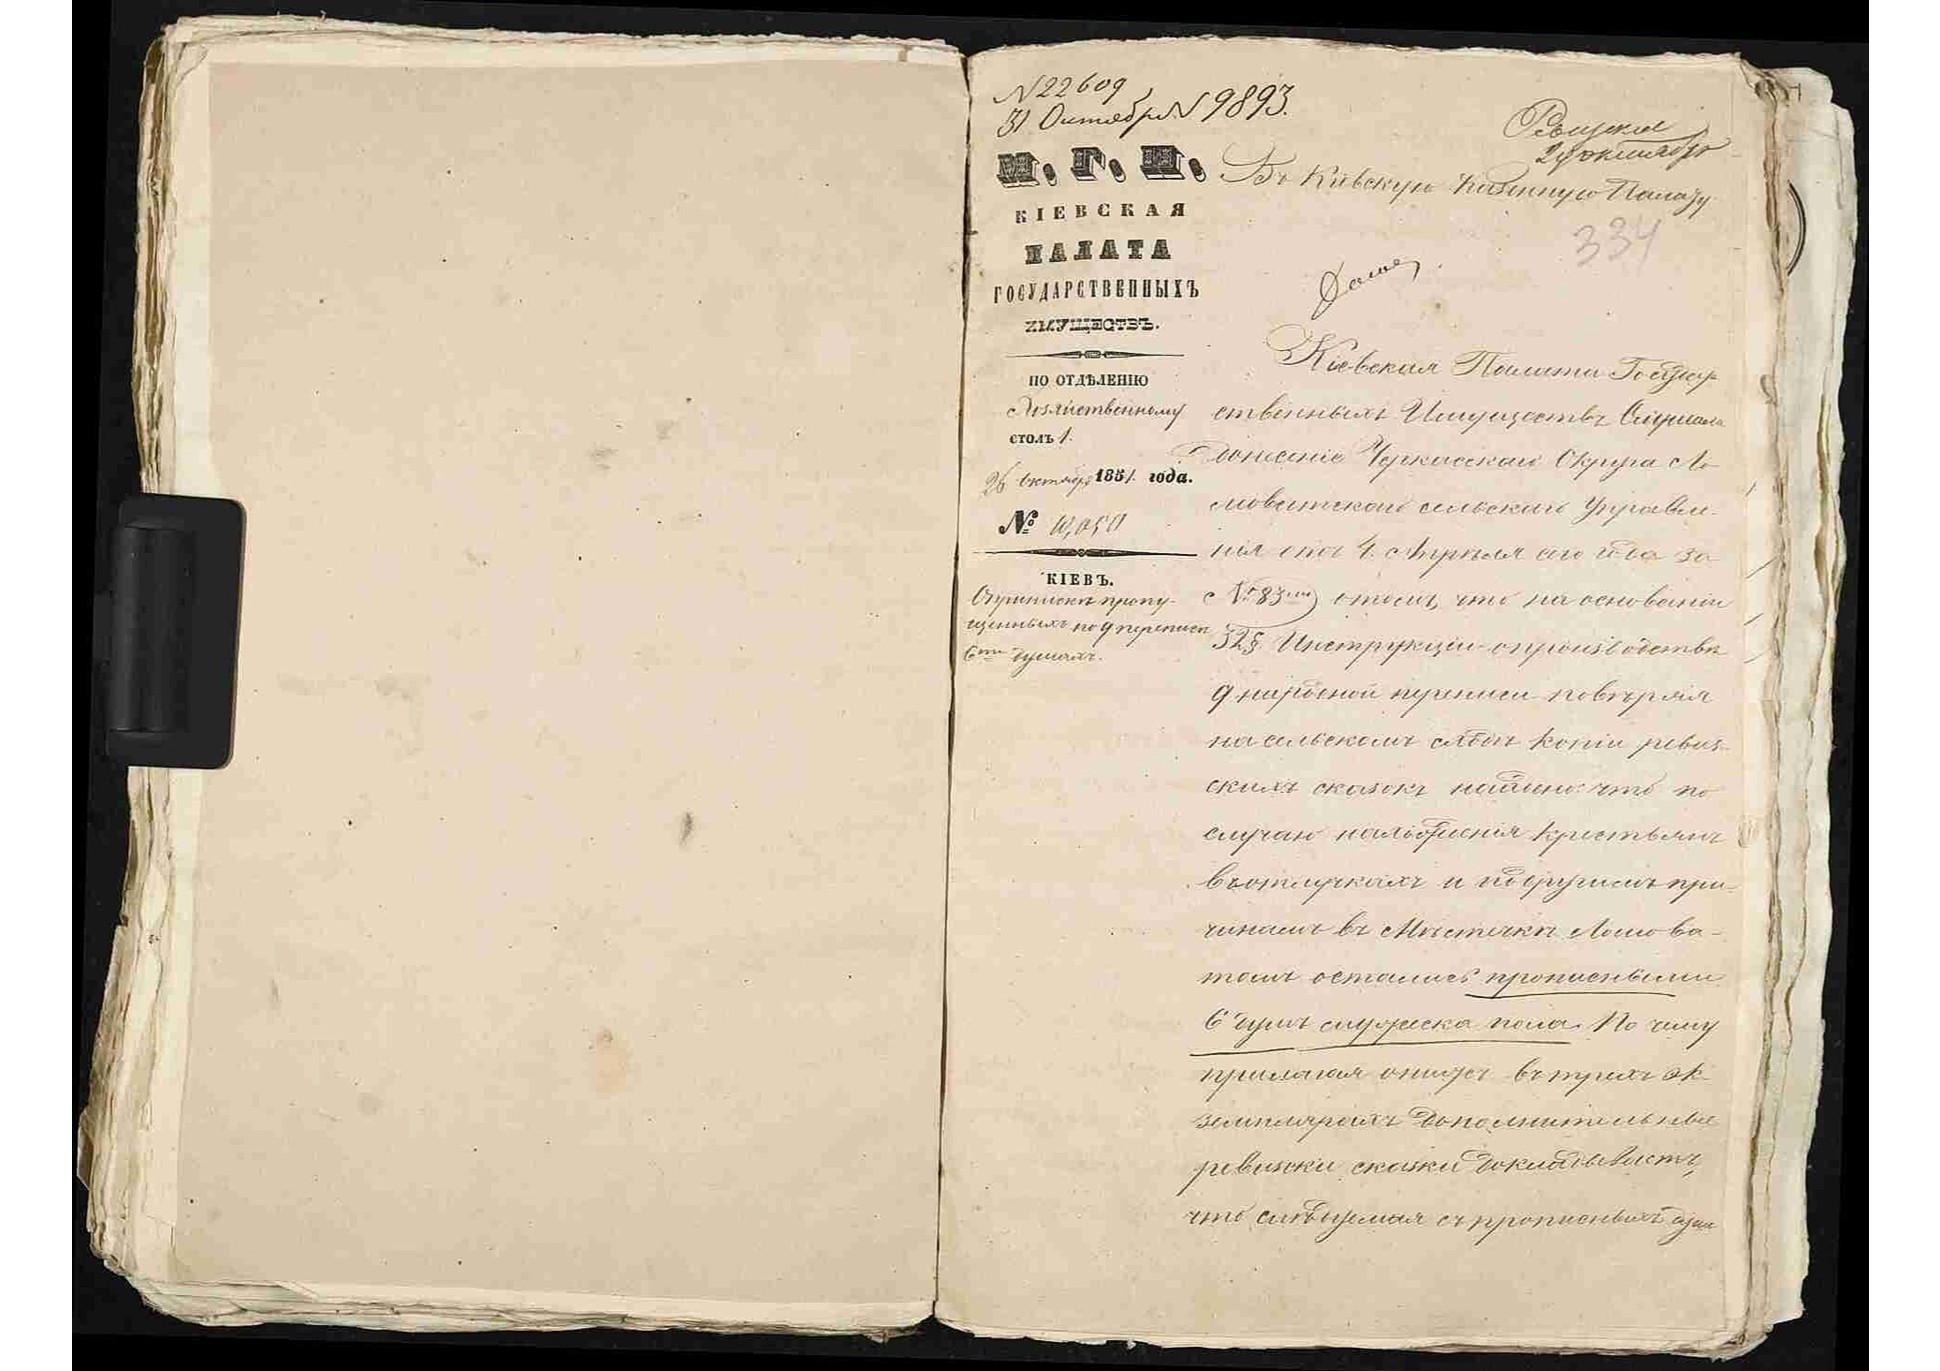 N 22609
31 Октября N 9893.
29 октября
М. Г. И.
КІЕВСКАЯ
ПАЛАТА
ГОСУДАРСТВЕННЫХЪ
ИМУЩЕСТВЪ.
ПО ОТДѢЛЕНІЮ
Хозяйственному
столъ 1.
26 октября 1851 года.
№ 10,050
КІЕВЪ.
О припискѣ пропу-
щенныхъ по 9 переписи
6ти душахъ.
Въ Кіевскую Казенную Палату
334
Кіевская Палата Государ
ственныхъ Имуществъ
донесеніе Черкасскаго Округа Ло
моватскаго сельскаго Управле-
нія отъ 4 Апрѣля сего года за
№ 83мъ о томъ, что на основаніи
32 § Инструкціи о производствѣ
9 народной переписи повѣряя
на сельскомъ сходѣ копіи ревиз-
скихъ сказокъ найдено: что по
случаю нахожденія крестьянъ
въ отлучкахъ и по другимъ при-
чинамъ въ Мѣстечкѣ Ломова-
томъ остались прописными
6 душъ мужеска пола. По чему
прилагая онихъ въ трехъ эк-
земплярахъ дополнительныя
ревизски сказки докладываетъ,
что слѣдуемая съ прописныхъ душъ